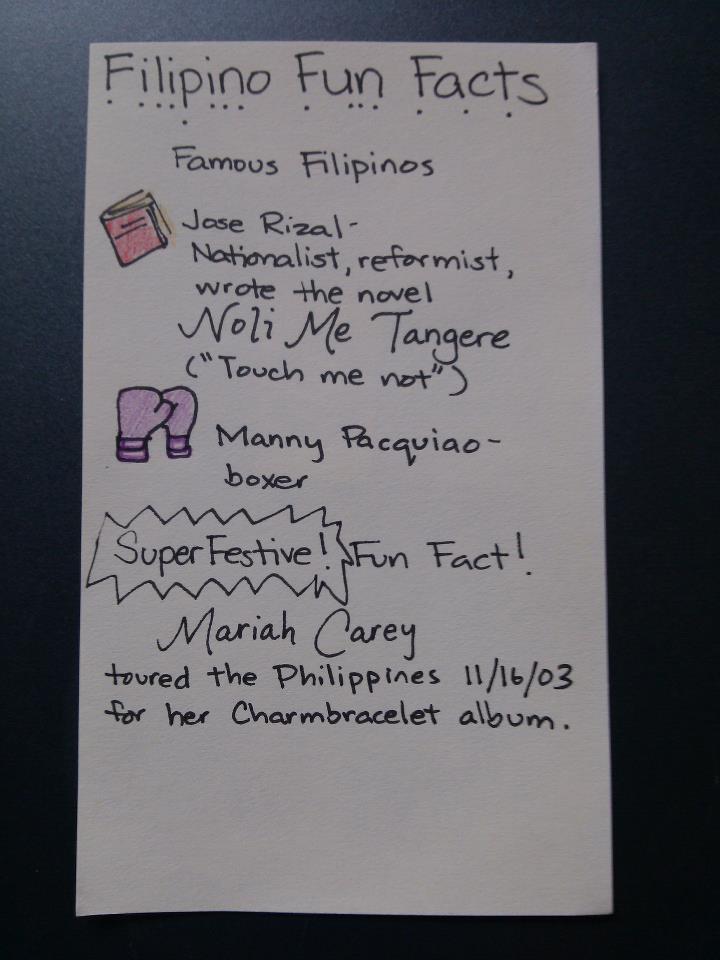 Filipino Fun Facts
Famous Filipinos
Jose Rizal-
Nationalist, reformist,
wrote the novel
Noli Me Tangere
("Touch me not")
Manny Pacquiao-
boxer
Super Festive! Fun Fact!
Mariah Carey
toured the Philippines 11/16/03
for her Charmbracelet album.